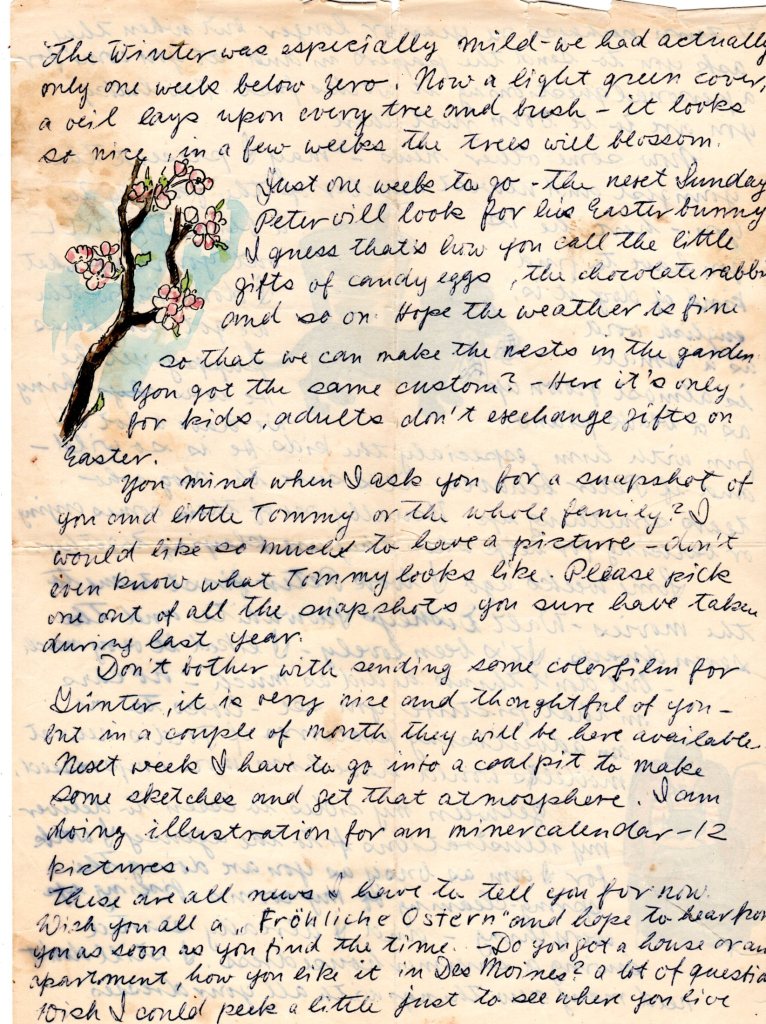 The Winter was especially mild - we had actually
only one week below zero. Now a light green cover,
a veil lays upon every tree and bush - it looks
so nice, in a few weeks the trees will blossom.
Just one week to go - the next Sunday
Peter will look for his Easter bunny
I guess that's how you call the little
gifts of candy eggs, the chocolate rabbi
and so on. Hope the weather is fine
so that we can make the nests in the garden.
You got the same custom? - Here it's only
for kids, adults don't exchange gifts on
Easter.
You mind when I ask you for a snapshot of
you and little Tommy or the whole family? I
would like so much to have a picture - don't
even know what Tommy looks like. Please pick
one out of all the snapshots you sure have taken
during last year.
Don't bother with sending some colorfilm for
Günter, it is very nice and thoughtful of you -
but in a couple of month they will be here available.
Next week I have to go into a coalpit to make
some sketches and get that atmosphere. I am
doing illustration for an minercalendar - 12
pictures.
These are all news I have to tell you for now.
Wish you all a „Fröhliche Ostern" and hope to hear from
you as soon as you find the time. - Do you got a house or an
apartment, how you like it in Des Moines? a lot of questio
Wish I could peek a little just to see where you live